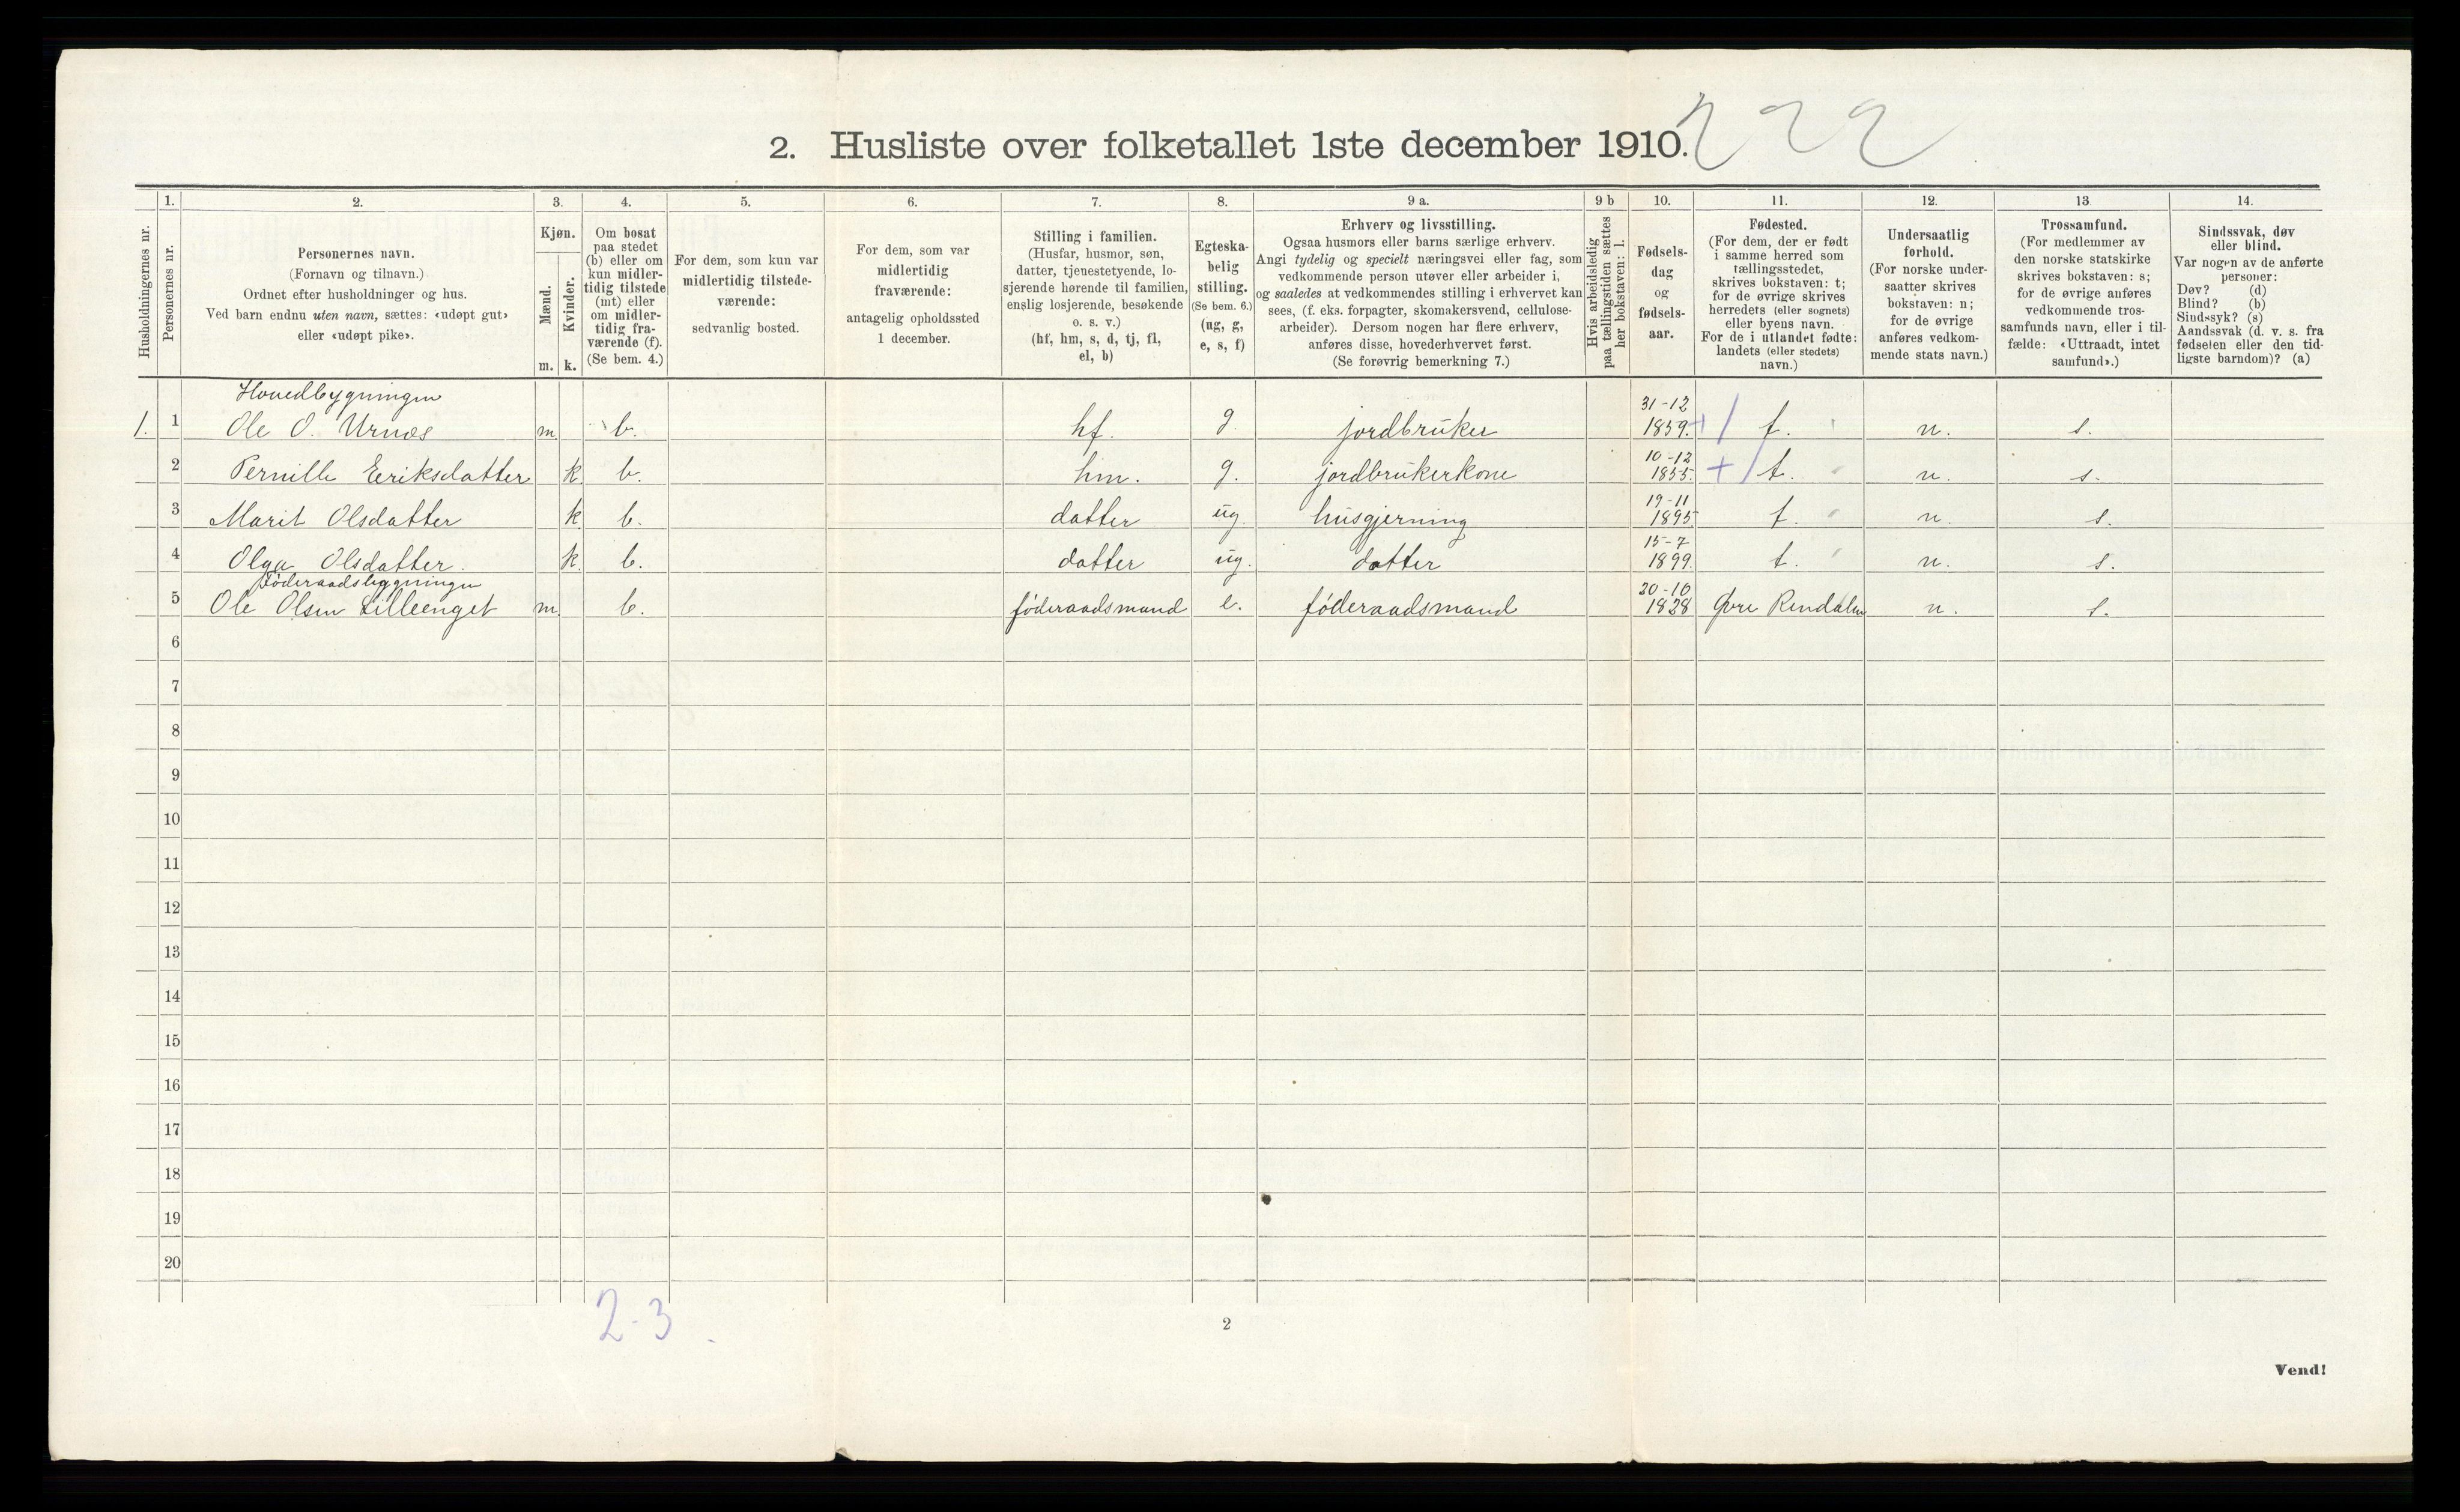 2. Husliste over folketallet 1ste december 1910.
222
Husholdningernes nr.
1.
Personernes nr.
2.
Personernes navn.
(Fornavn og tilnavn.)
Ordnet efter husholdninger og hus.
Ved barn endnu uten navn, sættes: «udøpt gut»
eller «udøpt pike».
3.
Kjøn.
Mænd.
Kvinder.
m. k.
4.
Om bosat
paa stedet
(b) eller om
kun midler-
tidig tilstede
(mt) eller
om midler-
tidig fra-
værende (f).
(Se bem. 4.)
5.
For dem, som kun var
midlertidig tilstede-
værende:
sedvanlig bosted.
6.
For dem, som var
midlertidig
fraværende:
antagelig opholdssted
1 december.
7.
Stilling i familien.
(Husfar, husmor, søn,
datter, tjenestetyende, lo-
sjerende hørende til familien,
enslig losjerende, besøkende
o. s. v.)
(hf, hm, s, d, tj, fl,
el, b)
8.
Egteska-
belig
stilling.
(Se bem. 6.)
(ug, g,
e, s, f)
9 a.
Erhverv og livsstilling.
Ogsaa husmors eller barns særlige erhverv.
Angi tydelig og specielt næringsvei eller fag, som
vedkommende person utøver eller arbeider i,
og saaledes at vedkommendes stilling i erhvervet kan
sees, (f. eks. forpagter, skomakersvend, cellulose-
arbeider). Dersom nogen har flere erhverv,
anføres disse, hovederhvervet først.
(Se forøvrig bemerkning 7.)
9 b
Hvis arbeidsledig
paa tællingstiden sættes
her bokstaven: l.
10.
Fødsels-
dag
og
fødsels-
aar.
11.
Fødested.
(For dem, der er født
i samme herred som
tællingsstedet,
skrives bokstaven: t;
for de øvrige skrives
herredets (eller sognets)
eller byens navn.
For de i utlandet fødte:
landets (eller stedets)
navn.)
12.
Undersaatlig
forhold.
(For norske under-
saatter skrives
bokstaven: n;
for de øvrige
anføres vedkom-
mende stats navn.)
13
Trossamfund.
(For medlemmer av
den norske statskirke
skrives bokstaven: s;
for de øvrige anføres
vedkommende tros-
samfunds navn, eller i til-
fælde: «Uttraadt, intet
samfund».)
14.
Sindssvak, døv
eller blind.
Var nogen av de anførte
personer:
Døv? (d)
Blind? (b)
Sindssyk? (s)
Aandssvak (d. v. s. fra
fødselen eller den tid-
ligste barndom)? (a)
Hovedbygningen
1. 1 Ole O. Urnæs m. b. hf. g. jordbruker 31-12 1859. + / t. n. s.
2 Pernille Eeriksdatter k. b. hm. g. jordbrukerkone 10-12 1855. + / t. n. s.
3 Marit Olsdatter k b. datter ug. husgjerning 19-11 1895. t. n. s.
4 Olga Olsdatter. k. b. datter ug. datter 15-7 1899. t. n. s.
Föderaadsbygningen
5 Ole Olsen Lilleenget m. b. föderaadsmand e. föderaadsmand 30-10 1828 Øvre Rendalen n. s.
6
7
8
9
10
11
12
13
14
15
16
17
18
19
20
2-3
2
Vend!